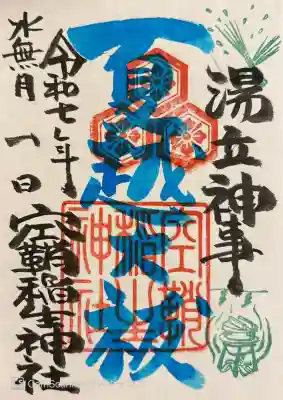 湯立神事
夏越大祓
令和七年
水無月
一日
空鞘稲生神社
空鞘
稲生
神社